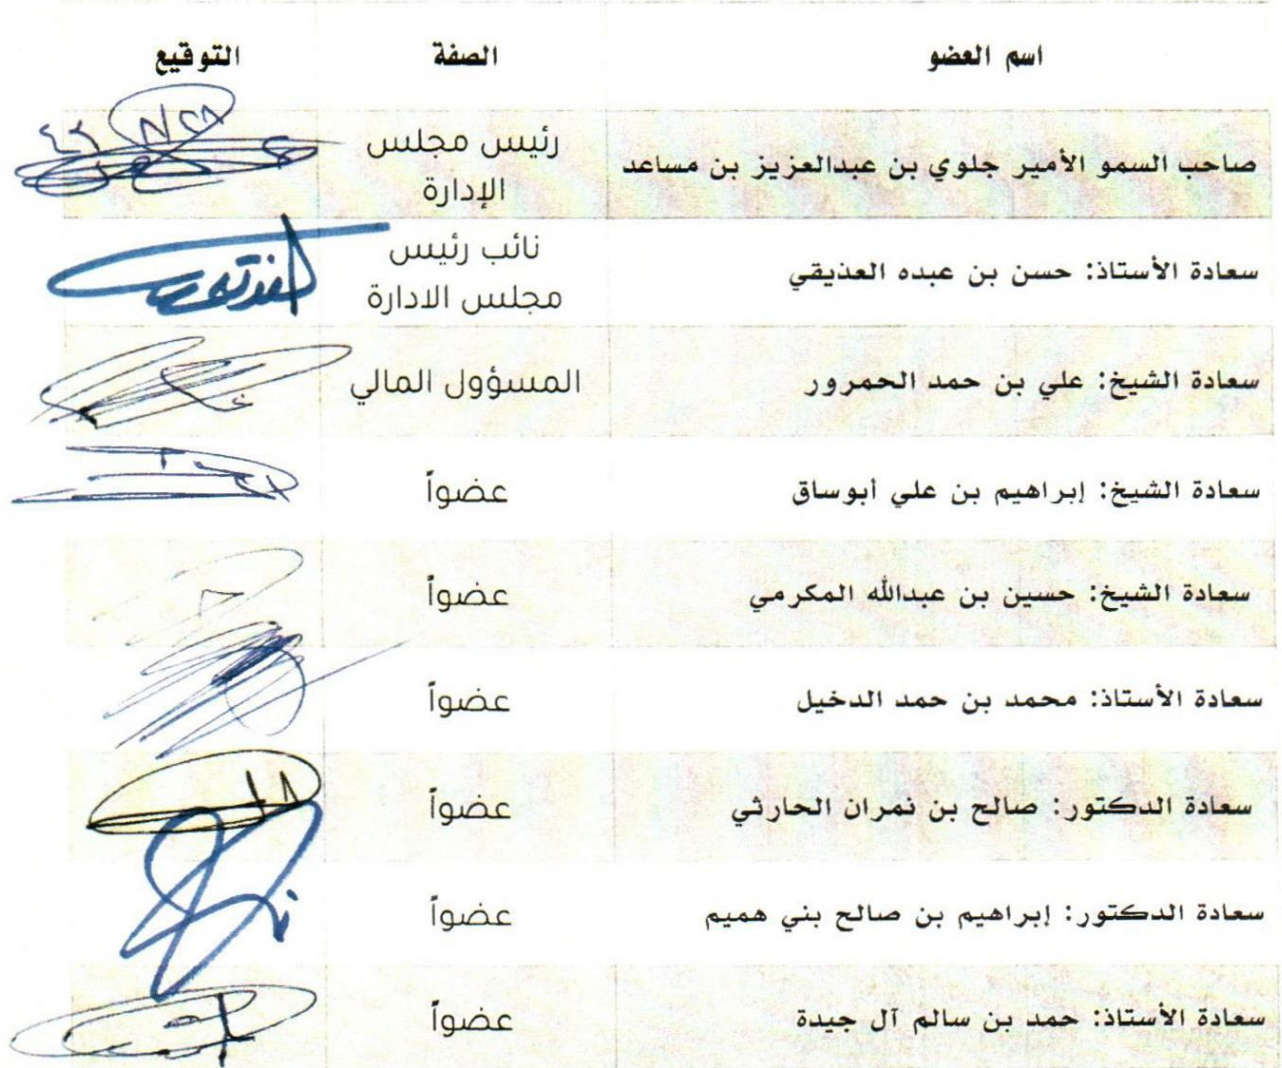 اسم العضو الصفة التوقيع
٤٢ ٨/٢٨
صاحب السمو الأمير جلوي بن عبدالعزيز بن مساعد رئيس مجلس
الإدارة
سعادة الأستاذ: حسن بن عبده العذيقي نائب رئيس
مجلس الادارة
سعادة الشيخ: علي بن حمد الحمرور المسؤول المالي
سعادة الشيخ: إبراهيم بن علي أبوساق عضواً
سعادة الشيخ: حسين بن عبدالله المكرمي عضواً
سعادة الأستاذ: محمد بن حمد الدخيل عضواً
سعادة الدكتور: صالح بن نمران الحارثي عضواً
سعادة الدكتور: إبراهيم بن صالح بني هميم عضواً
سعادة الأستاذ: حمد بن سالم آل جيدة عضواً